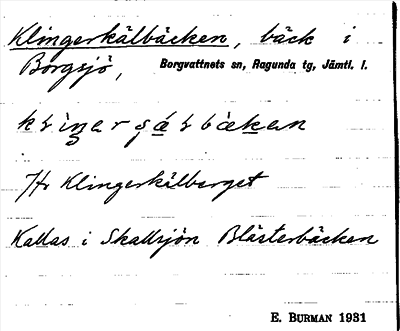 Klingerkälbäcken, bäck i
Borgsjö, Borgvattnets sn, Ragunda tg, Jämtl. l.
Klingerkälberget
Kallas i Skallsjön Blästerbäcken
E. BURMAN 1931